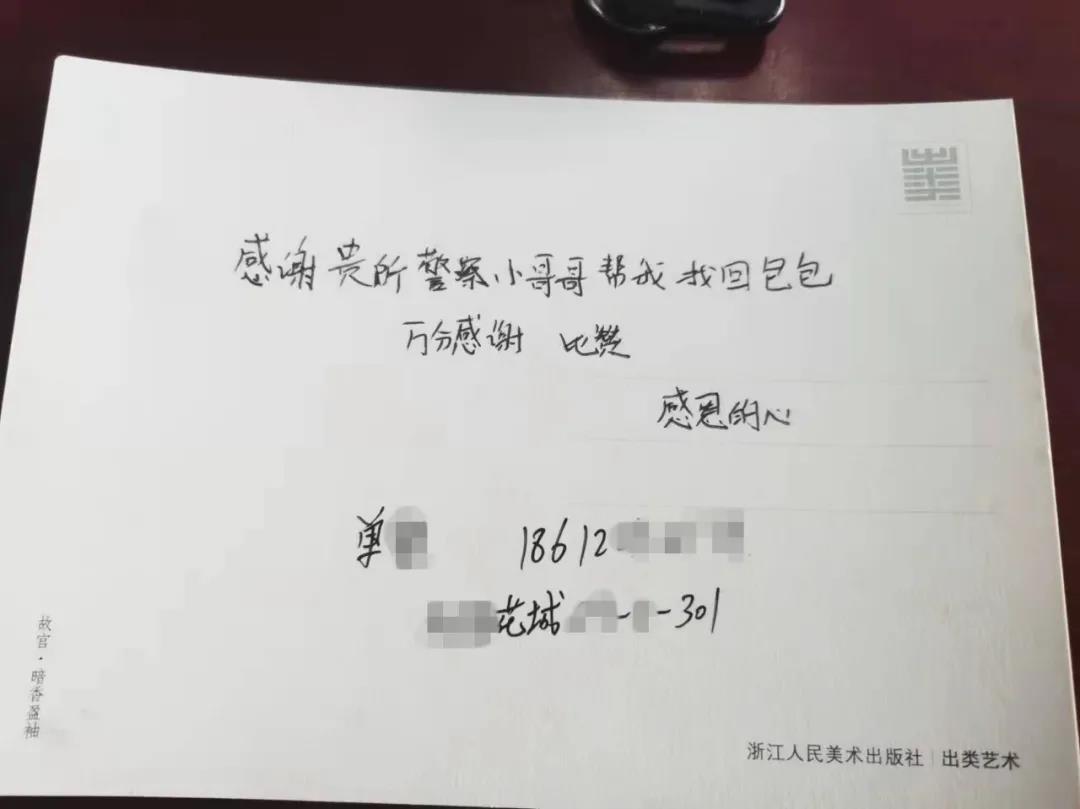 感谢贵所警察小哥哥帮我找回包包
万分感谢 比赞
感恩的心
单 18612
花城 -1-301
故宫·暗香盈袖
浙江人民美术出版社 | 出类艺术